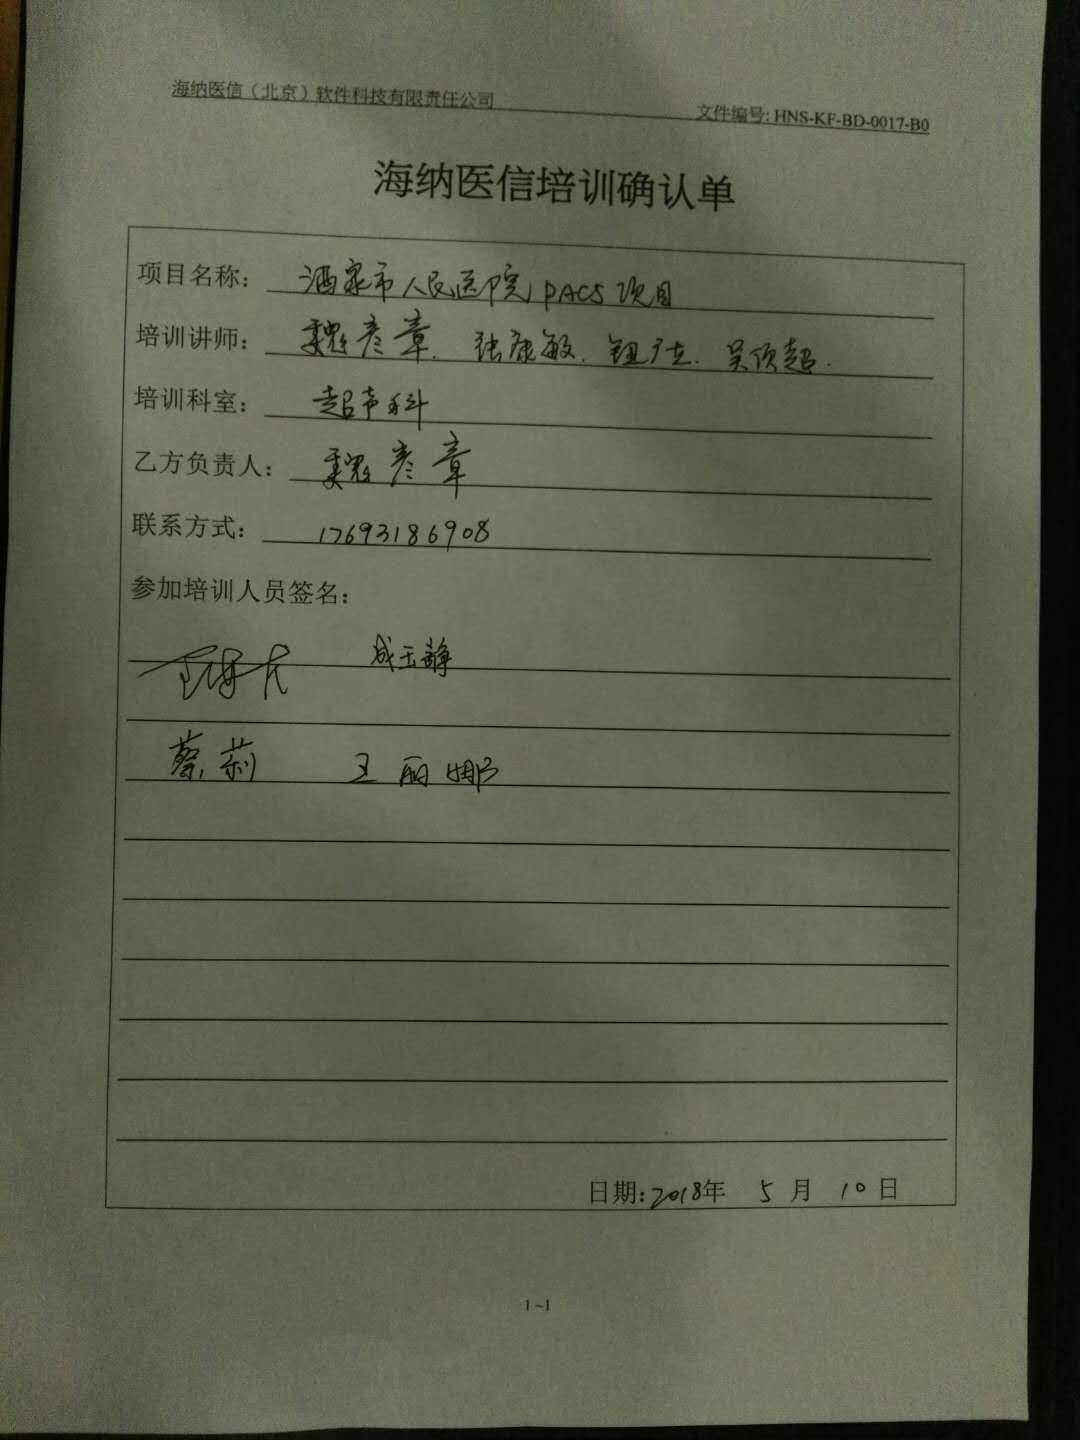 海纳医信（北京）软件科技有限责任公司
文件编号: HNS-KF-BD-0017-B0
海纳医信培训确认单
项目名称： 酒泉市人民医院PACS项目
培训讲师： 魏彦章. 张庭敏. 钮广在. 吴顶超.
培训科室： 超声科
乙方负责人： 魏彦章
联系方式： 17693186908
参加培训人员签名：
成玉静
蔡莉 王丽娜
日期: 2018年 5 月 10 日
1~1